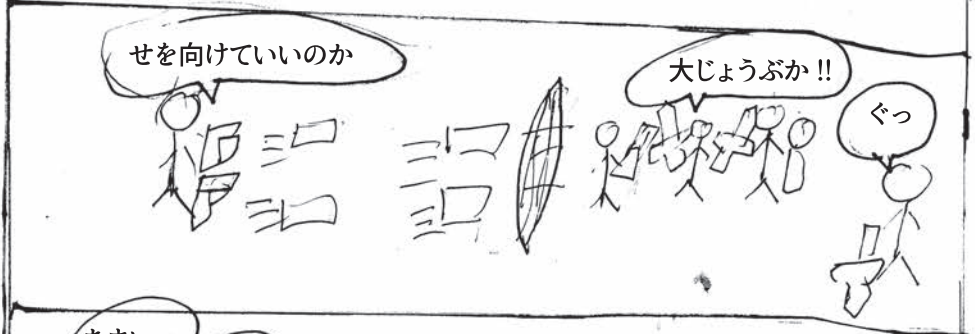 せを向けていいのか
大じょうぶか!!
ぐっ